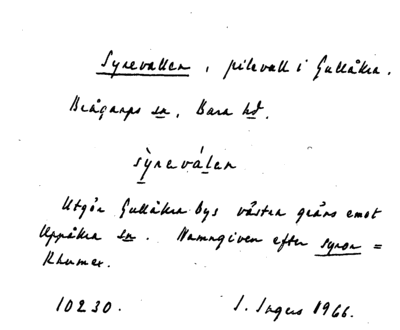 Syrevallen, pilevall i Gullåkra.
Bråganps sn, Bara hd.
sỳreválen
Utgör Gullåkra bys västra gräns emot
Uppåkra sn. Namngiven efter syror =
Rhumex.
10230. I. Ingers 1966.